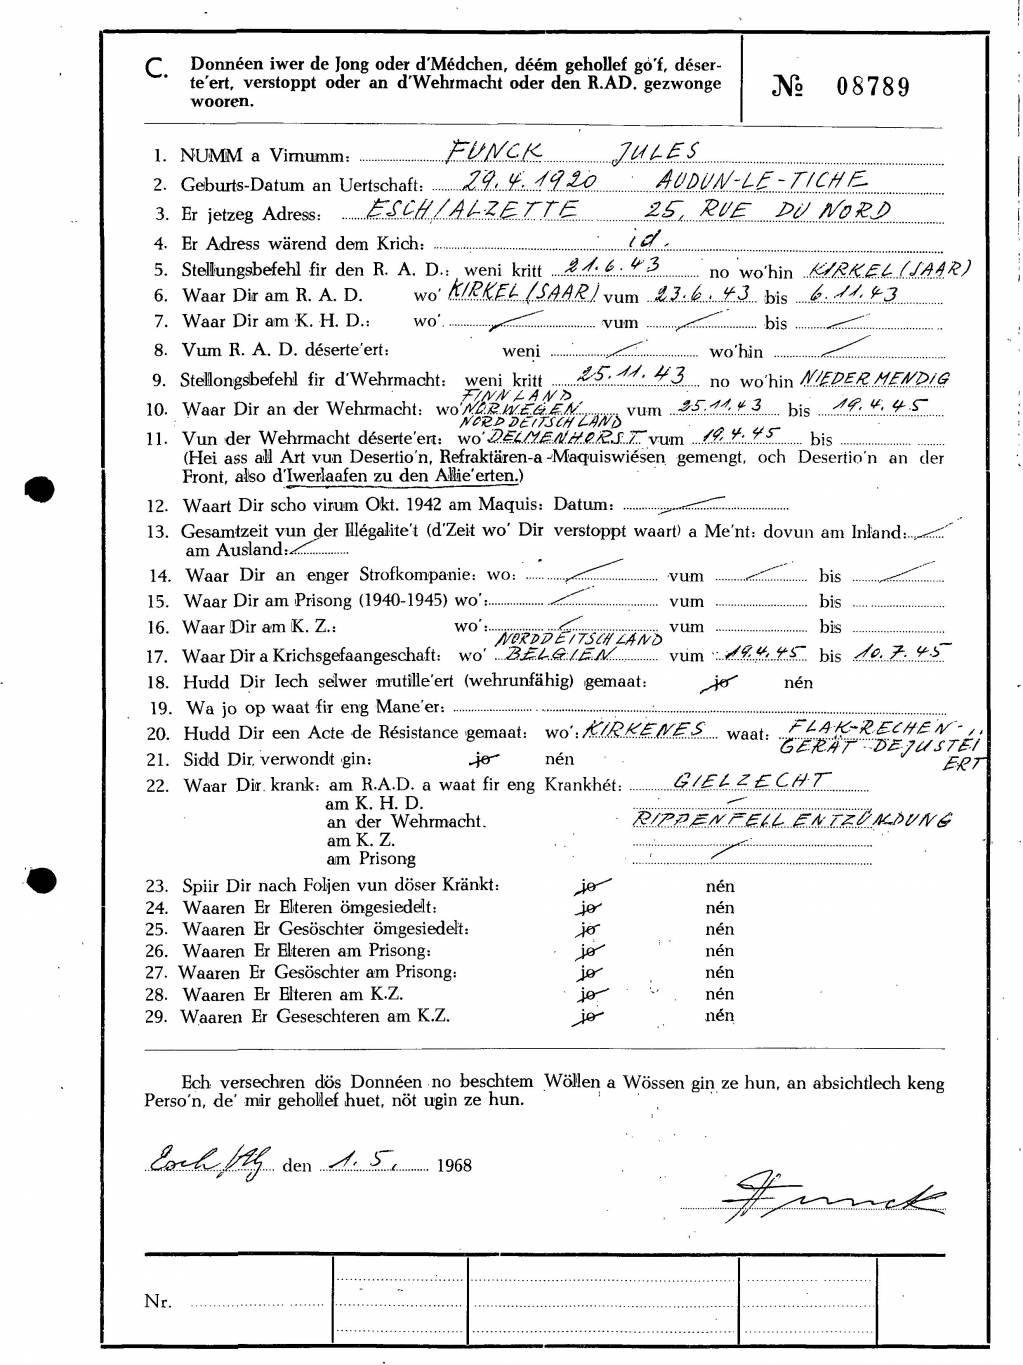 C. Donnéen iwer de Jong oder d'Médchen, déém gehollef go'f, déser-
te'ert, verstoppt oder an d'Wehrmacht oder den R.AD. gezwonge
wooren.
№ 08789
1. NUMM a Virnumm: FUNCK JULES
2. Geburts-Datum an Uertschaft: 29.4.1920 AUDUN-LE-TICHE
3. Er jetzeg Adress: ESCH/ALZETTE 25, RUE DU NORD
4. Er Adress wärend dem Krich: id.
5. Stellungsbefehl fir den R. A. D.: weni kritt 21.6.43 no wo'hin KIRKEL (SAAR)
6. Waar Dir am R. A. D. wo' KIRKEL (SAAR) vum 23.6.43 bis 6.11.43
7. Waar Dir am K. H. D.: wo' vum bis
8. Vum R. A. D. déserte'ert: weni wo'hin
9. Stellongsbefehl fir d'Wehrmacht: weni kritt 25.11.43 no wo'hin NIEDERMENDIG
FINNLAND
10. Waar Dir an der Wehrmacht: wo' NORWEGEN vum 25.11.43 bis 19.4.45
NORDDEITSCHLAND
11. Vun der Wehrmacht déserte'ert: wo' DELMENHORST vum 19.4.45 bis
(Hei ass all Art vun Desertio'n, Refraktären-a-Maquiswiésen gemengt, och Desertio'n an der
Front, also d'Iwerlaafen zu den Allie'erten.)
12. Waart Dir scho virum Okt. 1942 am Maquis: Datum:
13. Gesamtzeit vun der Illégalite't (d'Zeit wo' Dir verstoppt waart) a Me'nt: dovun am Inland:
am Ausland:
14. Waar Dir an enger Strofkompanie: wo: vum bis
15. Waar Dir am Prisong (1940-1945) wo': vum bis
16. Waar Dir am K. Z.: wo': vum bis
NORDDEITSCHLAND
17. Waar Dir a Krichsgefaangeschaft: wo' BELGIEN vum 19.4.45 bis 10.7.45
18. Hudd Dir Iech selwer mutille'ert (wehrunfähig) gemaat: jo nén
19. Wa jo op waat fir eng Mane'er:
20. Hudd Dir een Acte de Résistance gemaat: wo': KIRKENES waat: FLAK-RECHEN-
GERÄT DEJUSTEI
21. Sidd Dir verwondt gin: jo nén ERT
22. Waar Dir krank: am R.A.D. a waat fir eng Krankhét: GIELZECHT
am K. H. D.
an der Wehrmacht. RIPPENFELLENTZÜNDUNG
am K. Z.
am Prisong
23. Spiir Dir nach Foljen vun döser Kränkt: jo nén
24. Waaren Er Elteren ömgesiedelt: jo nén
25. Waaren Er Gesöschter ömgesiedelt: jo nén
26. Waaren Er Elteren am Prisong: jo nén
27. Waaren Er Gesöschter am Prisong: jo nén
28. Waaren Er Elteren am K.Z. jo nén
29. Waaren Er Geseschteren am K.Z. jo nén
Ech versechren dös Donnéen no beschtem Wöllen a Wössen gin ze hun, an absichtlech keng
Perso'n, de' mir gehollef huet, nöt ugin ze hun.
Esch/Alz den 1.5. 1968
Funck
Nr.